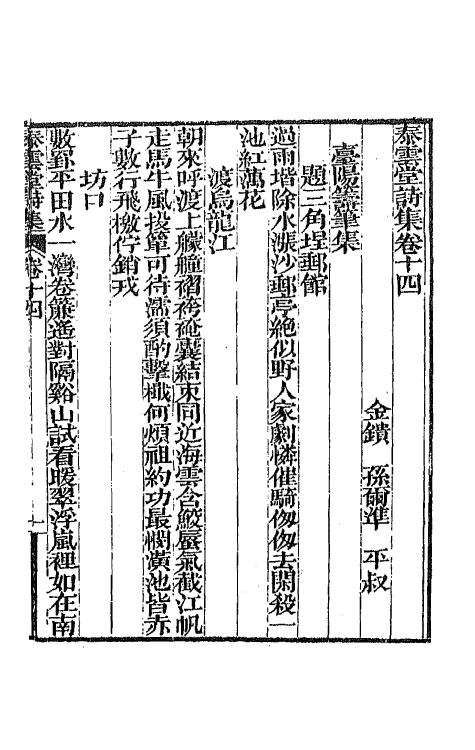 泰雲堂詩集卷十四
金鐀　孫爾準　平叔
臺陽籌筆集
題三角埕郵館
過雨堦除水漲沙郵亭絶似野人家劇憐催騎匆匆去開殺一
池紅藕花
渡烏龍江
朝來呼渡上艨艟褶袴䘸囊結束同近海雲含鮫蜃氣截江帆
走馬牛風投簞可待濡須酌擊檝何煩祖約功最憫潢池皆赤
子數行飛檄佇銷戎
坊口
數弓平田水一灣卷簾遙對隔谿山試看暖翠浮嵐裡如在南
泰雲堂詩集　卷十四　一